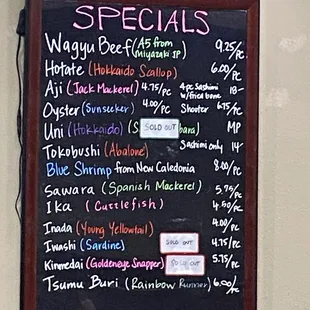 SPECIALS
Wagyu Beef (A5 from Miyazaki JP) 9.25/pc
Hotate (Hokkaido Scallop) 6.00/pc
Aji (Jack Mackerel) 4.75/pc 4pc Sashimi w/fried bone 18-
Oyster (Sunseeker) 4.00/pc Shooter 6.75/pc
Uni (Hokkaido) (S SOLD OUT bara) MP
Tokobushi (Abalone) Sashimi only 14-
Blue Shrimp from New Caledonia 8.00/pc
Sawara (Spanish Mackerel) 5.75/pc
Ika (Cuttlefish) 4.50/pc
Inada (Young Yellowtail) 4.00/pc
Iwashi (Sardine) SOLD OUT 4.75/pc
Kinmedai (Goldeneye Snapper) SOLD OUT 5.75/pc
Tsumu Buri (Rainbow Runner) 6.00/pc